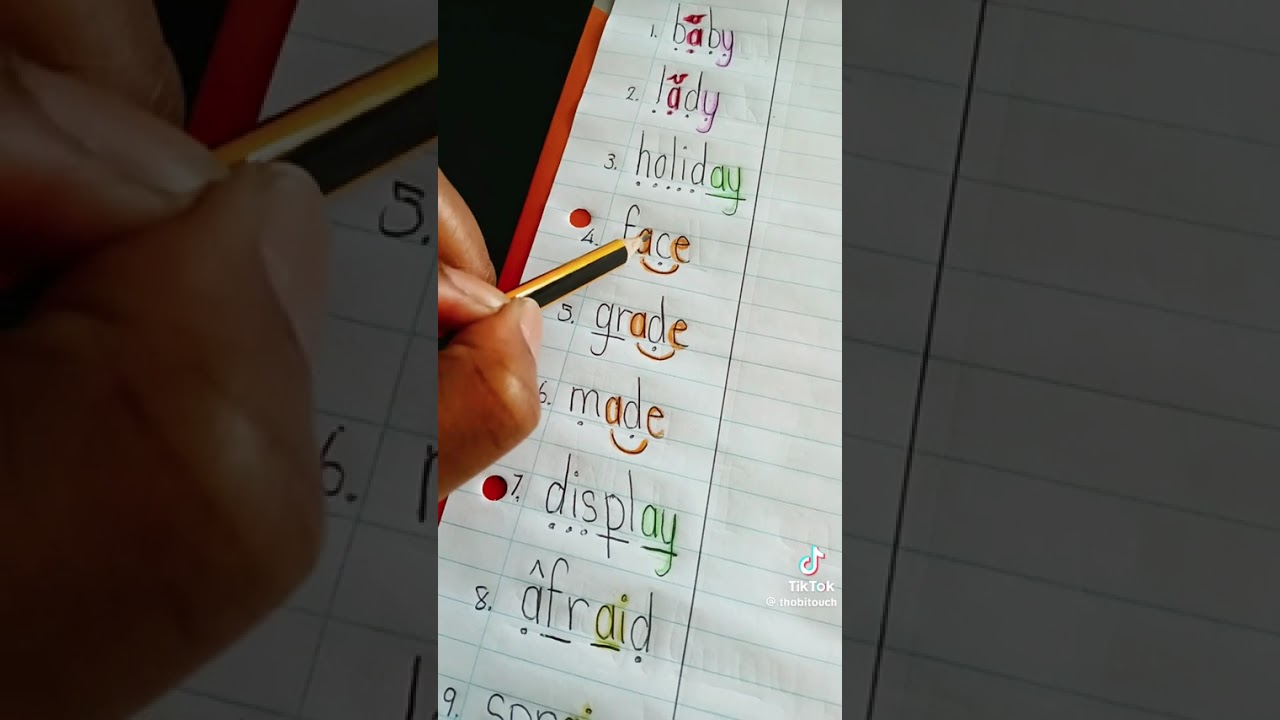 1. băby
2. lădy
3. holiday
4. face
5. grade
6. made
7. display
8. âfraid
9.
TikTok
@thobitouch
5.
6.